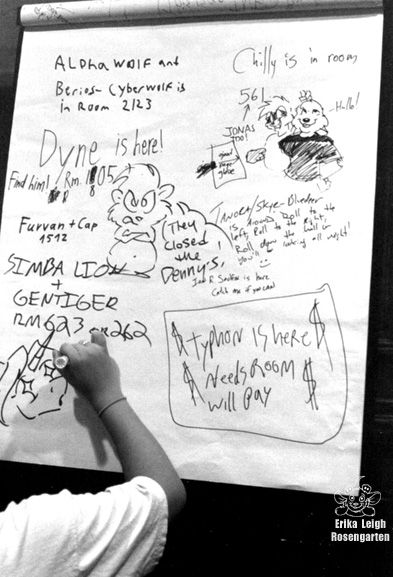 ALPHAWOLF and
Berios- Cyberwolf is
in Room 2123
Chilly is in room
561
Hello!
JONAS
TOO!
glue
Dyne is here!
Find him! Rm. 1805
Furvan + Cap
1512
They
closed
the
Denny's!
is Around, Roll to the
left, Roll to the Right,
Roll down the hall or
you'll be looking all night!
is here
Catch me if you can!
SIMBA LION
+
GENTIGER
RM 623 or 262
$ $
Typhon is here
Needs Room
Will Pay
$ $
Erika Leigh
Rosengarten